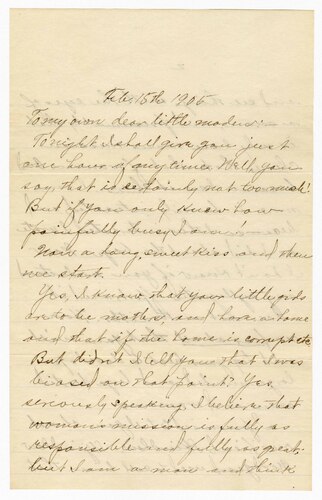 Feb. 15th 1905
To my own dear little maden:
Tonight I shall give you just
one hour of my time. Well, you
say, that is certainly not too much!
But if you only knew how
painfully busy I am!
Now a long, sweet kiss and then
we start.
Yes, I know that your little girls
are to be mothers, and have a home
and that if the home is corrupt etc.
But didn't I tell you that I was
biased on that point? Yes,
seriously speaking, I believe that
woman's mission is fully as
responsible and fully as great.
but I am a man and think